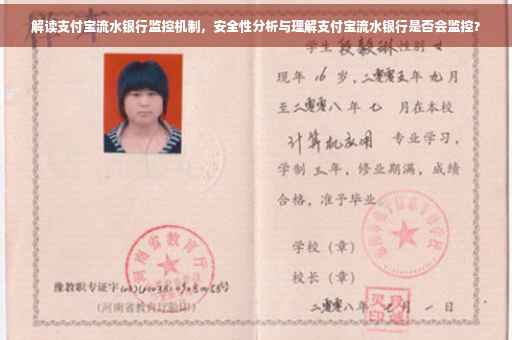 解读支付宝流水银行监控机制，安全性分析与理解支付宝流水银行是否会监控？
学生段毅琳性别女
现年16岁，二零零五年九月
至二零零八年七月在本校
计算机应用专业学习，
学制三年，修业期满，成绩
合格，准予毕业。
学校（章）
校长（章）
二零零八年七月一日
河南省教育厅
豫教职专证字
（河南省教育厅验印）